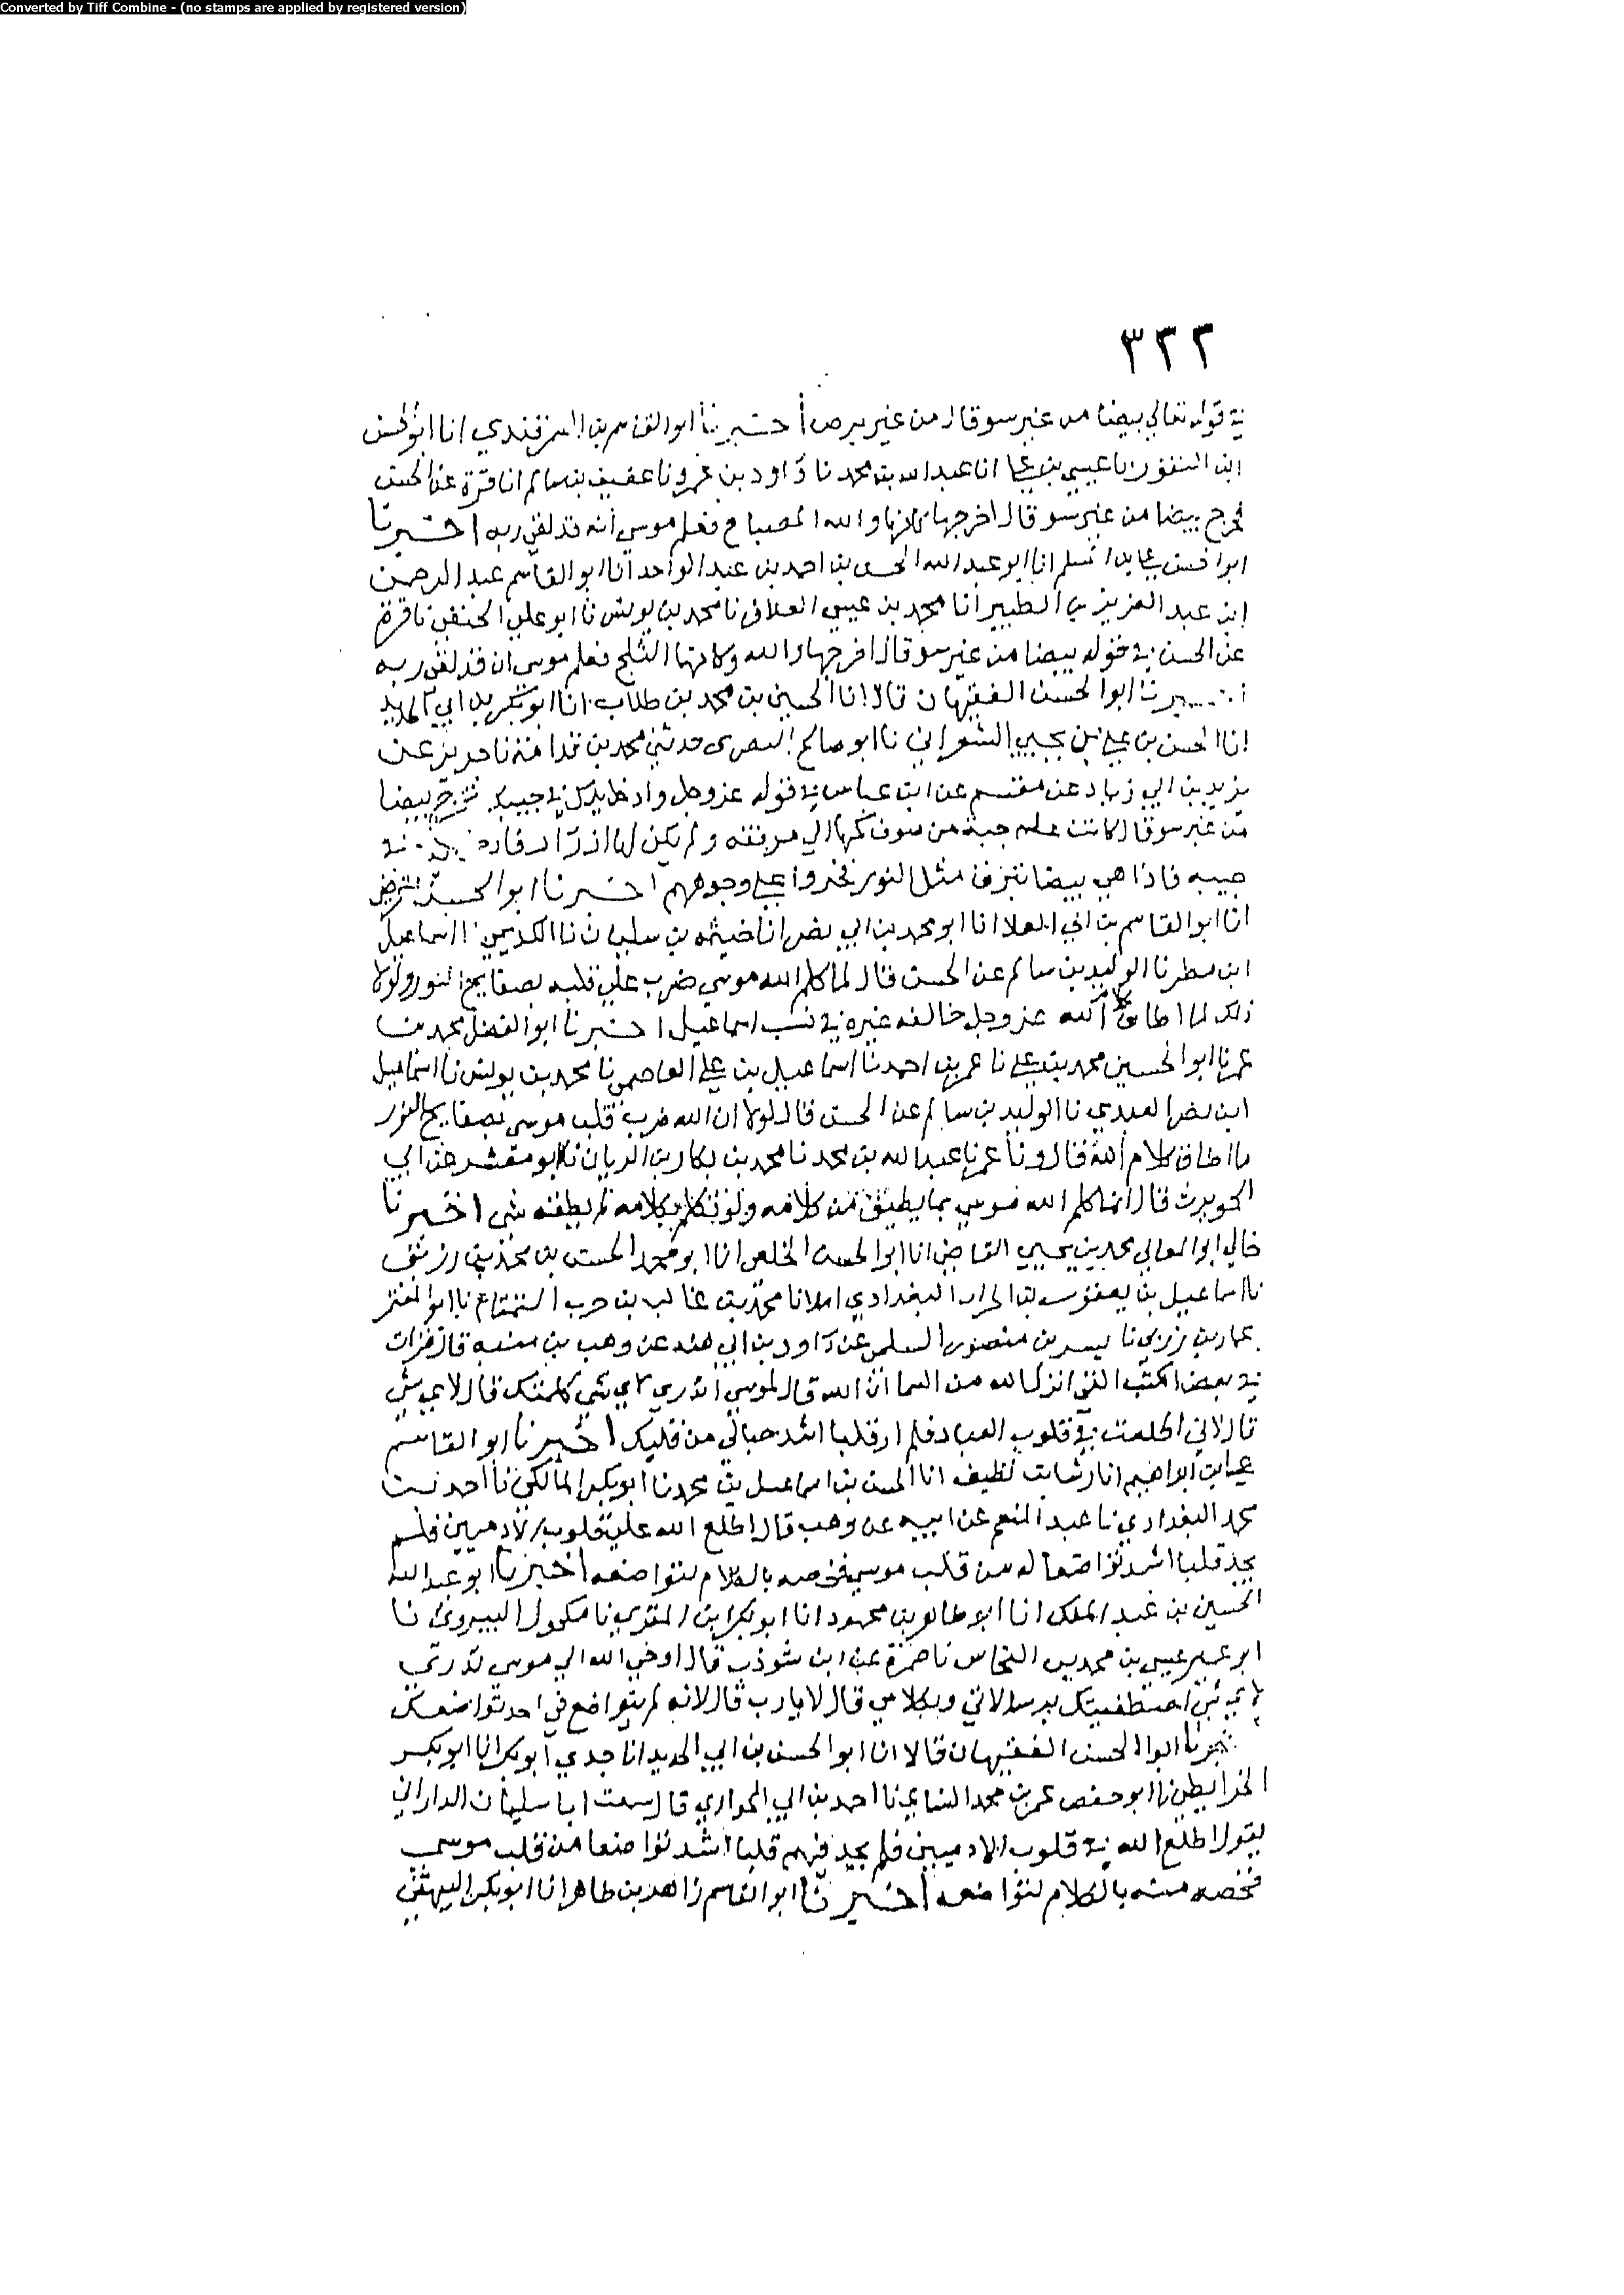 Converted by Tiff Combine - (no stamps are applied by registered version)
٣٢٢
في قوله تعالى بيضا من غير سو قال من غير برص أخبرنا ابو القاسم بن السمرقندي انا ابو الحسن
ابن النقور انا عيسى بن علي انا عبد الله بن محمد نا داود بن عمرو نا عفيف بن سالم انا قرة عن الحسن
تخرج بيضا من غير سو قال اخرجها كانها والله المصباح فعلم موسى أنه قد لقي ربه اخبرنا
ابو الحسن علي بن المسلم انا ابو عبد الله الحسن بن احمد بن عبد الواحد انا ابو القاسم عبد الرحمن
ابن عبد العزيز بن الطبيز انا محمد بن عيسى العلاف نا محمد بن يونس نا ابو علي الحنفي نا قرة
عن الحسن في قوله بيضا من غير سو قال اخرجها والله وكانها الثلج فعلم موسى ان قد لقي ربه
ابوا الحسن الفقيهان قالا انا الحسين بن محمد بن طلاب انا ابو بكر بن ابي الحديد
انا الحسن بن علي بن يحيى الشعراني نا ابو صالح البصري حدثني محمد بن قدامة نا جرير عن
يزيد بن ابي زياد عن مقسم عن ابن عباس في قوله عز وجل وادخل يدك في جيبك تخرج بيضا
من غير سو قال كانت عليه جبة من صوف كمها الى مرفقه ولم يكن لها ازرار فادخل يده في
جيبه فاذا هي بيضا تبرق مثل النور فخروا على وجوههم اخبرنا ابو الحسن الفرضي
انا ابو القاسم بن ابي العلا انا ابو محمد بن ابي نصر انا خيثمة بن سليمان نا الكديمي نا اسماعيل
ابن مطر نا الوليد بن سالم عن الحسن قال لما كلم الله موسى ضرب على قلبه بصفايح النور ولولا
ذلك لما اطاق كلام الله عز وجل خالفه غيره في نسب اسماعيل اخبرنا ابو الفضل محمد بن
عمر نا ابو الحسين محمد بن علي نا عمر بن احمد نا اسماعيل بن علي العاصمي نا محمد بن يونس نا اسماعيل
ابن نصر العبدي نا الوليد بن سالم عن الحسن قال لولا ان الله ضرب قلب موسى بصفايح النور
ما اطاق كلام الله قال ونا عمر نا عبد الله بن محمد نا محمد بن بكار بن الريان نا ابو معشر عن ابي
الحويرث قال انما كلم الله موسى بما يطيق من كلامه ولو تكلم بكلامه لم يطقه شي اخبرنا
خالي ابو المعالي محمد بن يحيى القاضي انا ابو الحسن الخلعي انا ابو محمد الحسن بن محمد بن رزيق
نا اسماعيل بن يعقوب بن الجراب البغدادي املا نا محمد بن غالب بن حرب التمتام نا ابو المعتمر
عمار بن زربي نا بشر بن منصور السلمي عن داود بن ابي هند عن وهب بن منبه قال قرات
في بعض الكتب التي انزل الله من السما ان الله قال لموسى اتدري لاي شي كلمتك قال لاي شي
قال لاني اطلعت في قلوب العباد فلم ار قلبا اشد حبا لي من قلبك اخبرنا ابو القاسم
علي بن ابراهيم انا رشا بن نظيف انا الحسن بن اسماعيل بن محمد نا ابو بكر المالكي نا احمد بن
محمد البغدادي نا عبد المنعم عن ابيه عن وهب قال اطلع الله على قلوب الادميين فلم
يجد قلبا اشد تواضعا له من قلب موسى فخصه بالكلام لتواضعه اخبرنا ابو عبد الله
الحسين بن عبد الملك انا ابو طاهر بن محمود انا ابو بكر بن المقري نا مكحول البيروتي نا
ابو عمير عيسى بن محمد بن النحاس نا ضمرة عن ابن شوذب قال اوحى الله الى موسى تدري
لاي شي اصطفيتك برسالاتي وبكلامي قال لا يا رب قال لانه لم يتواضع لي احد تواضعك
اخبرنا ابوا الحسن الفقيهان قالا انا ابو الحسن بن ابي الحديد انا جدي ابو بكر انا ابو بكر
الخرايطي نا ابو حفص عمر بن محمد النسائي نا احمد بن ابي الحواري قال سمعت ابا سليمان الداراني
يقول اطلع الله في قلوب الادميين فلم يجد فيهم قلبا اشد تواضعا من قلب موسى
فخصه منه بالكلام لتواضعه أخبرنا ابو القاسم زاهد بن طاهر انا ابو بكر البيهقي